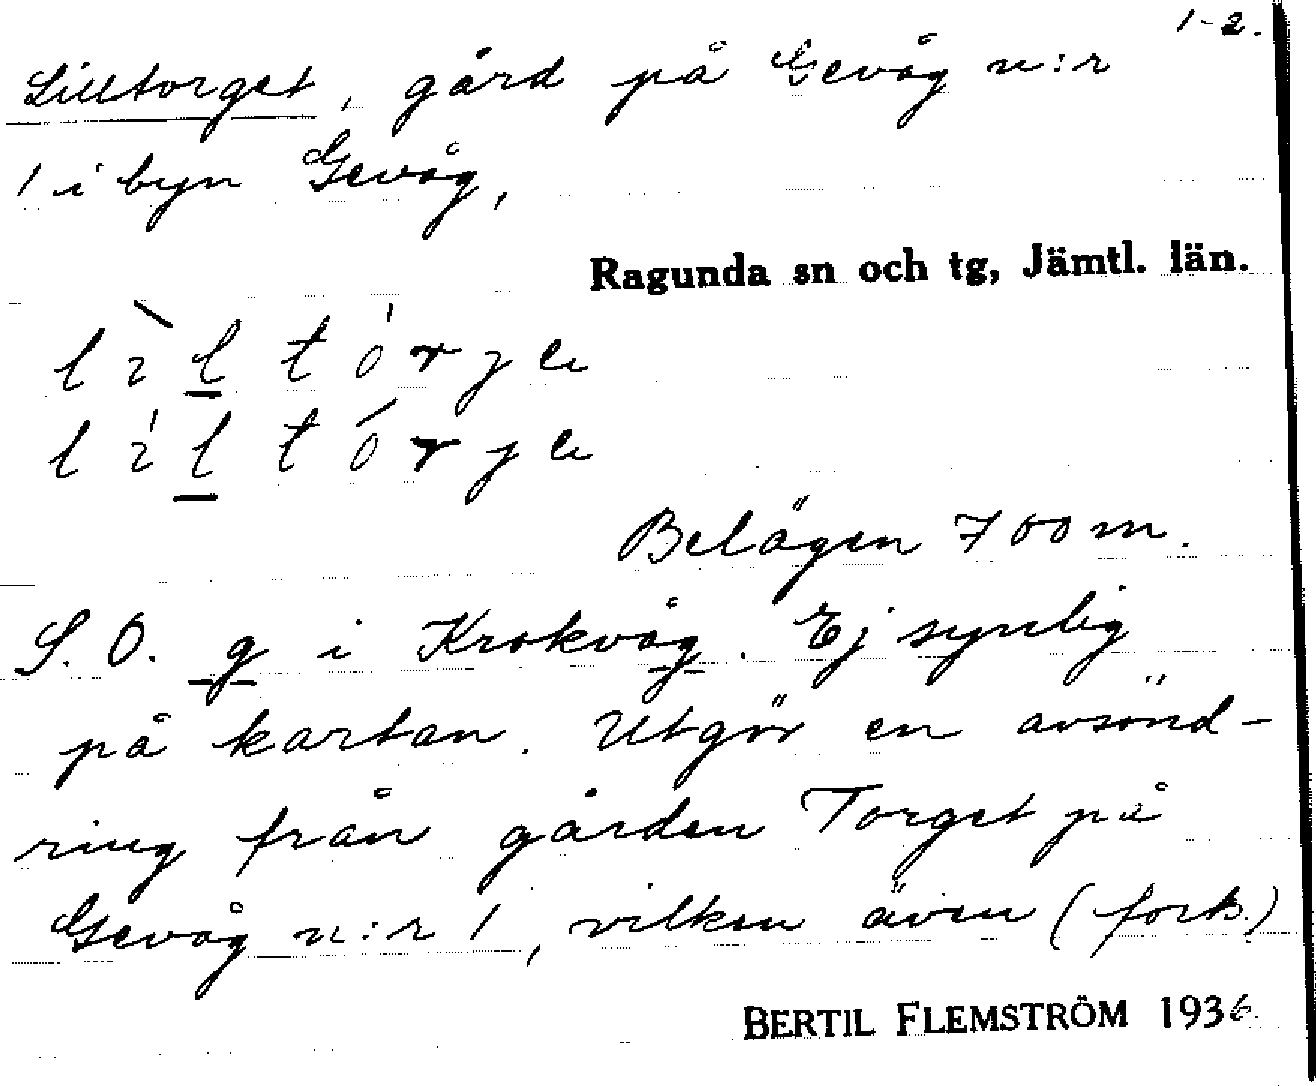 1-2.
Lilltorget, gård på Gevåg n:r
1 i byn Gevåg,
Ragunda sn och tg, Jämtl. län.
Belägen 700 m.
S. O. g i Krokvåg. Ej synlig
på kartan. Utgör en avsönd-
ring från gården Torget på
Gevåg n:r 1, vilken även (forts.)
BERTIL FLEMSTRÖM 1936